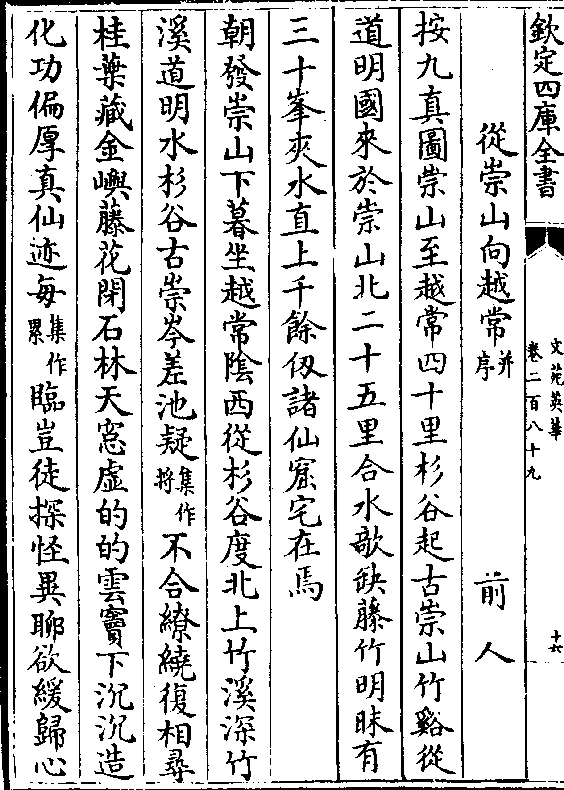 欽定四庫全書
文苑英華
卷二百八十九
十六
從崇山向越常并序 前人
按九真圖崇山至越常四十里杉谷起古崇山竹谿從
道明國來於崇山北二十五里合水欹缺藤竹明昧有
三十峯夾水直上千餘仭諸仙窟宅在焉
朝發崇山下暮坐越常隂西從杉谷度北上竹溪深竹
溪道明水杉谷古崇岑差池疑集作將不合繚繞復相尋
桂葉藏金嶼藤花閉石林天窓虚的的雲竇下沉沉造
化功偏厚真仙迹每集作累臨豈徒探怪異聊欲緩歸心